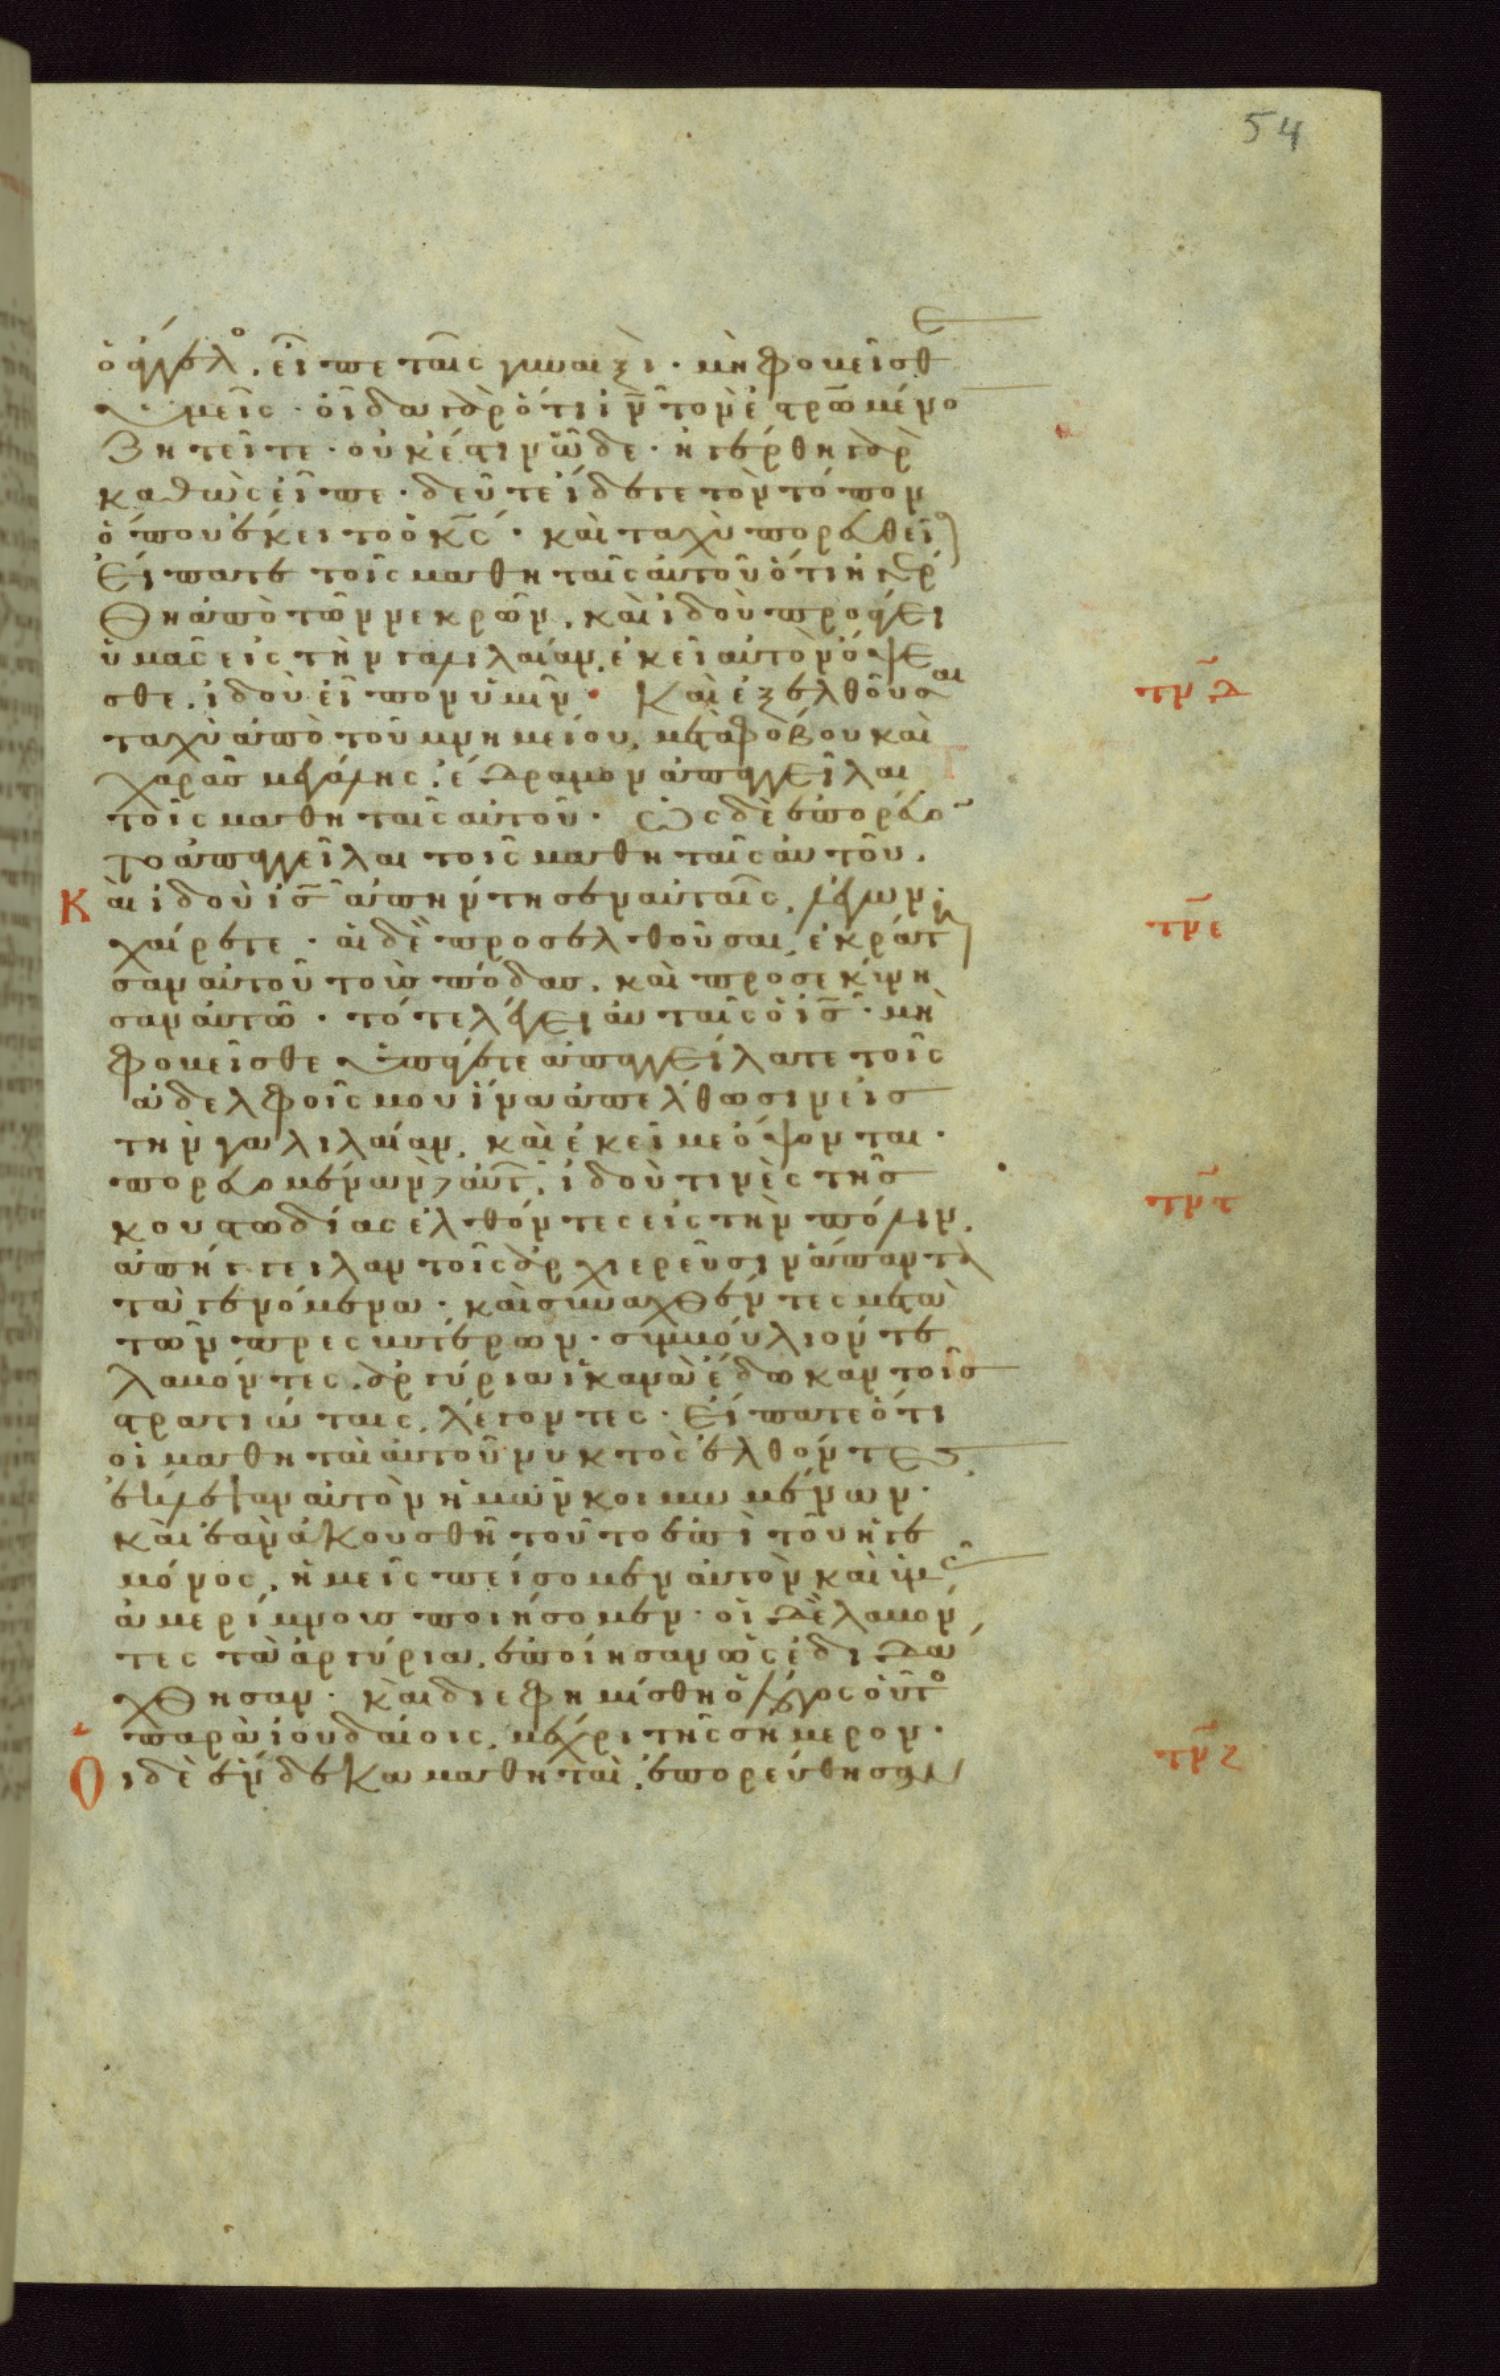 54
ὁ ἄγγελο. εἶπε ταῖς γυναιξὶ· μὴ φοβεῖσθε
ὑμεῖς· οἶδα γὰρ ὅτι ιν τὸν ἐσταυρωμένο
ζητεῖτε· οὐκ ἔστιν ὧδε· ἠγέρθη γὰρ
καθὼς εἶπε· δεῦτε ἴδετε τὸν τόπον
ὅπου ἔκειτο ὁ κς· καὶ ταχὺ πορευθεῖσαι
Εἴπατε τοῖς μαθηταῖς αὐτοῦ ὅτι ἠγέρ
θη ἀπὸ τῶν νεκρῶν. καὶ ἰδοὺ προάγει
ὑμᾶς εἰς τὴν γαλιλαίαν. ἐκεῖ αὐτὸν ὄψε
σθε. ἰδοὺ εἶπον ὑμῖν· Καὶ ἐξελθοῦσαι
τμδ
ταχὺ ἀπὸ τοῦ μνημείου, μετὰ φόβου καὶ
χαρᾶς μεγάλης. ἔδραμον ἀπαγγεῖλαι
τοῖς μαθηταῖς αὐτοῦ· Ὡς δὲ ἐπορεύον
το ἀπαγγεῖλαι τοῖς μαθηταῖς αὐτοῦ.
Καὶ ἰδοὺ ις ἀπήντησεν αὐταῖς, λέγων·
τμε
χαίρετε· αἱ δὲ προσελθοῦσαι, ἐκράτη
σαν αὐτοῦ τοὺς πόδας. καὶ προσεκύνη
σαν αὐτῶ· τότε λέγει αὐταῖς ὁ ις· μὴ
φοβεῖσθε ὑπάγετε ἀπαγγείλατε τοῖς
ἀδελφοῖς μου ἵνα ἀπέλθωσιν εἰς
τὴν γαλιλαίαν, καὶ ἐκεῖ με ὄψονται·
πορευομένων δὲ αὐτ, ἰδοὺ τινὲς τῆς
τμς
κουστωδίας ἐλθόντες εἰς τὴν πόλιν.
ἀπήγγειλαν τοῖς ἀρχιερεῦσιν ἅπαντα
τὰ γενόμενα· καὶ συναχθέντες μετὰ
τῶν πρεσβυτέρων· συμβούλιόν τε
λαβόντες. ἀργύρια ἱκανὰ ἔδωκαν τοῖς
στρατιώταις, λέγοντες· Εἴπατε ὅτι
οἱ μαθηταὶ αὐτοῦ νυκτὸς ἐλθόντες
ἔκλεψαν αὐτὸν ἡμῶν κοιμωμένων·
καὶ ἐὰν ἀκουσθῆ τοῦτο ἐπὶ τοῦ ἡγε
μόνος, ἡμεῖς πείσομεν αὐτὸν καὶ ὑμᾶς
ἀμερίμνους ποιήσομεν· οἱ δὲ λαβόν
τες τὰ ἀργύρια. ἐποίησαν ὡς ἐδιδά
χθησαν· καὶ διεφημίσθη ὁ λόγος οὗτο
παρὰ ἰουδαίοις, μέχρι τῆς σήμερον·
Οἱ δὲ ἕνδεκα μαθηταὶ, ἐπορεύθησαν
τμζ